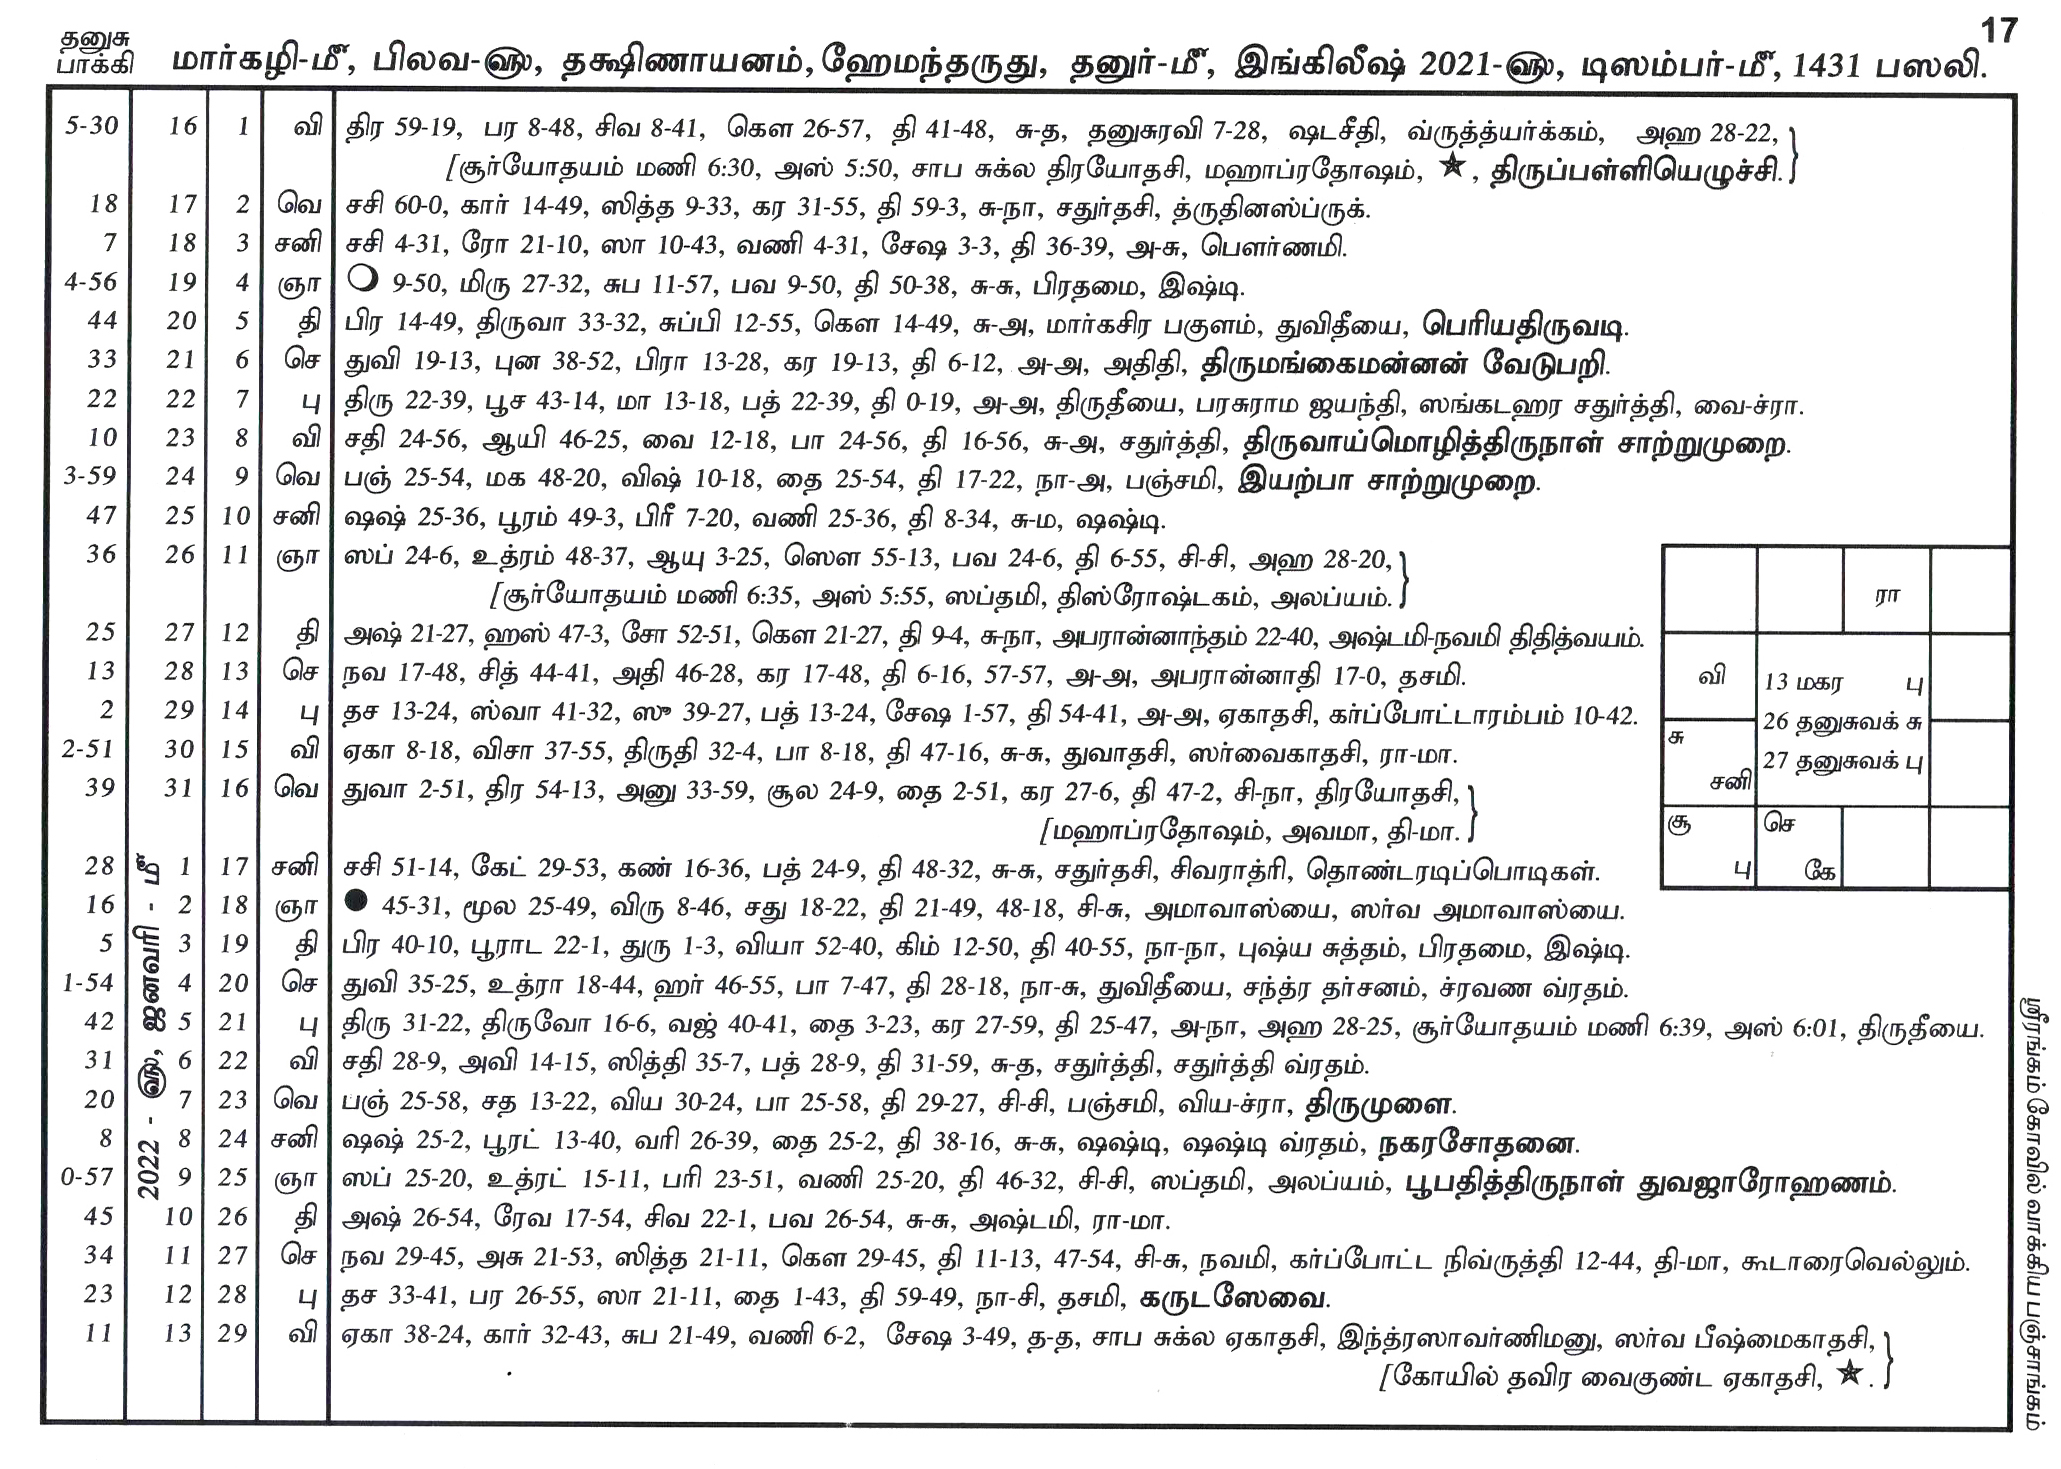 17
தனுசு
பாக்கி
மார்கழி-மீ, பிலவ-௵, தக்ஷிணாயனம், ஹேமந்தருது, தனுர்-மீ, இங்கிலீஷ் 2021-௵, டிஸம்பர்-மீ, 1431 பஸலி.
5-30 16 1 வி திர 59-19, பர 8-48, சிவ 8-41, கௌ 26-57, தி 41-48, சு-த, தனுசுரவி 7-28, ஷடசீதி, வ்ருத்த்யர்க்கம், அஹ 28-22,
[சூர்யோதயம் மணி 6:30, அஸ் 5:50, சாப சுக்ல திரயோதசி, மஹாப்ரதோஷம், ★, திருப்பள்ளியெழுச்சி.
18 17 2 வெ சசி 60-0, கார் 14-49, ஸித்த 9-33, கர 31-55, தி 59-3, சு-நா, சதுர்தசி, த்ருதினஸ்ப்ருக்.
7 18 3 சனி சசி 4-31, ரோ 21-10, ஸா 10-43, வணி 4-31, சேஷ 3-3, தி 36-39, அ-சு, பௌர்ணமி.
4-56 19 4 ஞா ○ 9-50, மிரு 27-32, சுப 11-57, பவ 9-50, தி 50-38, சு-சு, பிரதமை, இஷ்டி.
44 20 5 தி பிர 14-49, திருவா 33-32, சுப்பி 12-55, கௌ 14-49, சு-அ, மார்கசிர பகுளம், துவிதீயை, பெரியதிருவடி.
33 21 6 செ துவி 19-13, புன 38-52, பிரா 13-28, கர 19-13, தி 6-12, அ-அ, அதிதி, திருமங்கைமன்னன் வேடுபறி.
22 22 7 பு திரு 22-39, பூச 43-14, மா 13-18, பத் 22-39, தி 0-19, அ-அ, திருதீயை, பரசுராம ஜயந்தி, ஸங்கடஹர சதுர்த்தி, வை-ச்ரா.
10 23 8 வி சதி 24-56, ஆயி 46-25, வை 12-18, பா 24-56, தி 16-56, சு-அ, சதுர்த்தி, திருவாய்மொழித்திருநாள் சாற்றுமுறை.
3-59 24 9 வெ பஞ் 25-54, மக 48-20, விஷ் 10-18, தை 25-54, தி 17-22, நா-அ, பஞ்சமி, இயற்பா சாற்றுமுறை.
47 25 10 சனி ஷஷ் 25-36, பூரம் 49-3, பிரீ 7-20, வணி 25-36, தி 8-34, சு-ம, ஷஷ்டி.
36 26 11 ஞா ஸப் 24-6, உத்ரம் 48-37, ஆயு 3-25, ஸௌ 55-13, பவ 24-6, தி 6-55, சி-சி, அஹ 28-20,
[சூர்யோதயம் மணி 6:35, அஸ் 5:55, ஸப்தமி, திஸ்ரோஷ்டகம், அலப்யம்.
25 27 12 தி அஷ் 21-27, ஹஸ் 47-3, சோ 52-51, கௌ 21-27, தி 9-4, சு-நா, அபரான்னாந்தம் 22-40, அஷ்டமி-நவமி திதித்வயம்.
13 28 13 செ நவ 17-48, சித் 44-41, அதி 46-28, கர 17-48, தி 6-16, 57-57, அ-அ, அபரான்னாதி 17-0, தசமி.
2 29 14 பு தச 13-24, ஸ்வா 41-32, ஸு 39-27, பத் 13-24, சேஷ 1-57, தி 54-41, அ-அ, ஏகாதசி, கர்ப்போட்டாரம்பம் 10-42.
2-51 30 15 வி ஏகா 8-18, விசா 37-55, திருதி 32-4, பா 8-18, தி 47-16, சு-சு, துவாதசி, ஸர்வைகாதசி, ரா-மா.
39 31 16 வெ துவா 2-51, திர 54-13, அனு 33-59, சூல 24-9, தை 2-51, கர 27-6, தி 47-2, சி-நா, திரயோதசி,
[மஹாப்ரதோஷம், அவமா, தி-மா.
ரா
வி
13 மகர பு
26 தனுசுவக் சு
27 தனுசுவக் பு
சு
சனி
சூ
பு
செ
கே
2022 - ௵, ஜனவரி - மீ
28 1 17 சனி சசி 51-14, கேட் 29-53, கண் 16-36, பத் 24-9, தி 48-32, சு-சு, சதுர்தசி, சிவராத்ரி, தொண்டரடிப்பொடிகள்.
16 2 18 ஞா ● 45-31, மூல 25-49, விரு 8-46, சது 18-22, தி 21-49, 48-18, சி-சு, அமாவாஸ்யை, ஸர்வ அமாவாஸ்யை.
5 3 19 தி பிர 40-10, பூராட 22-1, துரு 1-3, வியா 52-40, கிம் 12-50, தி 40-55, நா-நா, புஷ்ய சுத்தம், பிரதமை, இஷ்டி.
1-54 4 20 செ துவி 35-25, உத்ரா 18-44, ஹர் 46-55, பா 7-47, தி 28-18, நா-சு, துவிதீயை, சந்த்ர தர்சனம், ச்ரவண வ்ரதம்.
42 5 21 பு திரு 31-22, திருவோ 16-6, வஜ் 40-41, தை 3-23, கர 27-59, தி 25-47, அ-நா, அஹ 28-25, சூர்யோதயம் மணி 6:39, அஸ் 6:01, திருதீயை.
31 6 22 வி சதி 28-9, அவி 14-15, ஸித்தி 35-7, பத் 28-9, தி 31-59, சு-த, சதுர்த்தி, சதுர்த்தி வ்ரதம்.
20 7 23 வெ பஞ் 25-58, சத 13-22, விய 30-24, பா 25-58, தி 29-27, சி-சி, பஞ்சமி, விய-ச்ரா, திருமுளை.
8 8 24 சனி ஷஷ் 25-2, பூரட் 13-40, வரி 26-39, தை 25-2, தி 38-16, சு-சு, ஷஷ்டி, ஷஷ்டி வ்ரதம், நகரசோதனை.
0-57 9 25 ஞா ஸப் 25-20, உத்ரட் 15-11, பரி 23-51, வணி 25-20, தி 46-32, சி-சி, ஸப்தமி, அலப்யம், பூபதித்திருநாள் துவஜாரோஹணம்.
45 10 26 தி அஷ் 26-54, ரேவ 17-54, சிவ 22-1, பவ 26-54, சு-சு, அஷ்டமி, ரா-மா.
34 11 27 செ நவ 29-45, அசு 21-53, ஸித்த 21-11, கௌ 29-45, தி 11-13, 47-54, சி-சு, நவமி, கர்ப்போட்ட நிவ்ருத்தி 12-44, தி-மா, கூடாரைவெல்லும்.
23 12 28 பு தச 33-41, பர 26-55, ஸா 21-11, தை 1-43, தி 59-49, நா-சி, தசமி, கருடஸேவை.
11 13 29 வி ஏகா 38-24, கார் 32-43, சுப 21-49, வணி 6-2, சேஷ 3-49, த-த, சாப சுக்ல ஏகாதசி, இந்த்ரஸாவர்ணிமனு, ஸர்வ பீஷ்மைகாதசி,
[கோயில் தவிர வைகுண்ட ஏகாதசி, ★.
ஸ்ரீரங்கம் கோவில் வாக்கிய பஞ்சாங்கம்